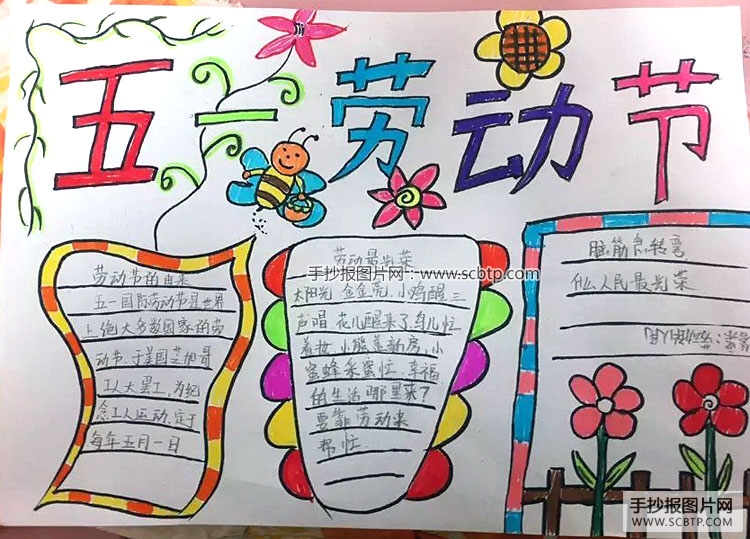 五一劳动节
劳动节的由来
五一国际劳动节是世界
上绝大多数国家的劳
动节.于美国芝加哥
工人大罢工,为纪
念工人运动.定于
每年五月一日
劳动最光荣
手抄报图片网:www.scbtp.com
太阳光 金金亮.小鸡醒三
声唱.花儿醒来了.鸟儿忙
着妆.小熊盖新房,小
蜜蜂采蜜忙.幸福
的生活哪里来?
要靠劳动来
帮忙.
脑筋急转弯
什么人民最光荣
劳动的人民
手抄报图片网
WWW.SCBTP.COM